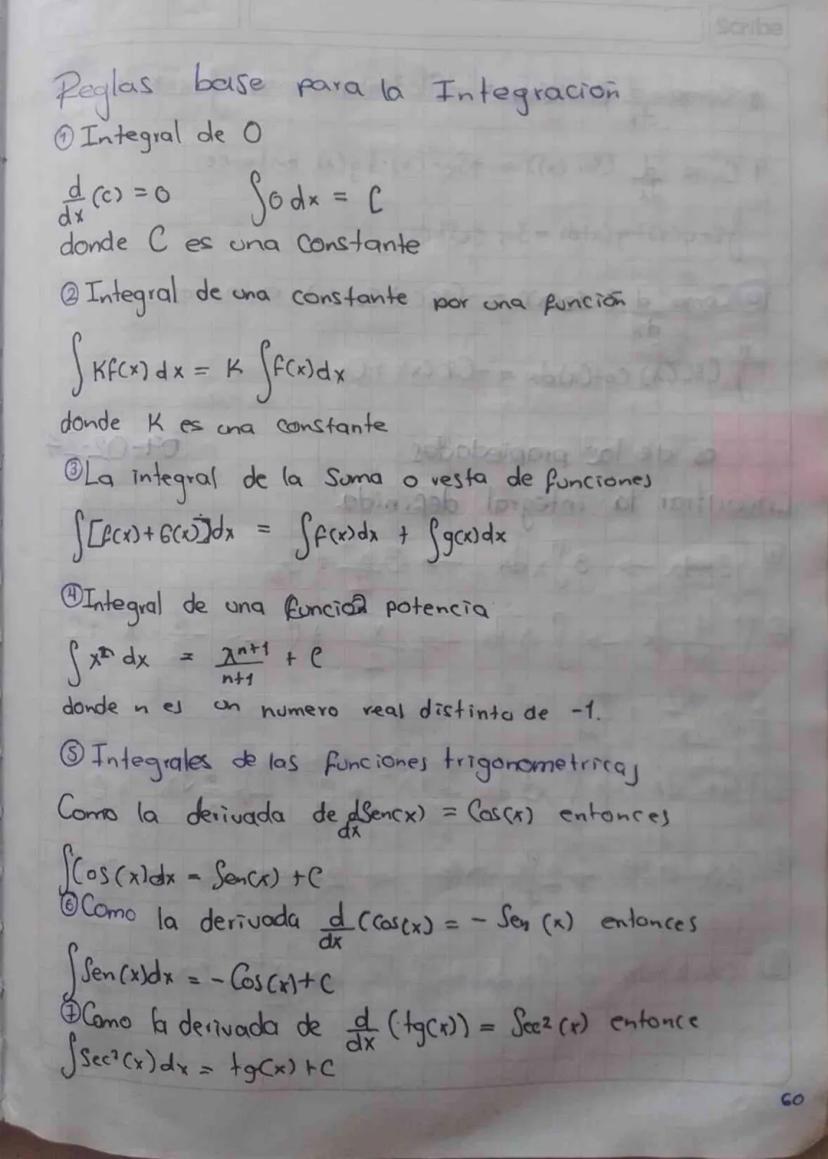 Scribe
Reglas base para la Integración
① Integral de 0
d/dx (c) = 0 ∫0 dx = C
donde C es una constante
② Integral de una constante por una función
∫Kf(x) dx = K ∫f(x)dx
donde K es una constante
③ La integral de la Suma o resta de funciones
∫[f(x) + G(x)]dx = ∫f(x)dx + ∫g(x)dx
④ Integral de una función potencia
∫xⁿ dx = xⁿ⁺¹/n+1 + C
donde n es un numero real distinto de -1.
⑤ Integrales de las funciones trigonometricas
Como la derivada de d/dx Sen(x) = Cos(x) entonces
∫Cos(x)dx = Sen(x) + C
⑥ Como la derivada d/dx (Cos(x) = - Sen (x) entonces
∫Sen(x)dx = - Cos(x) + C
⑦ Como la derivada de d/dx (tg(x)) = Sec²(x) entonce
∫Sec²(x)dx = tg(x) + C
60